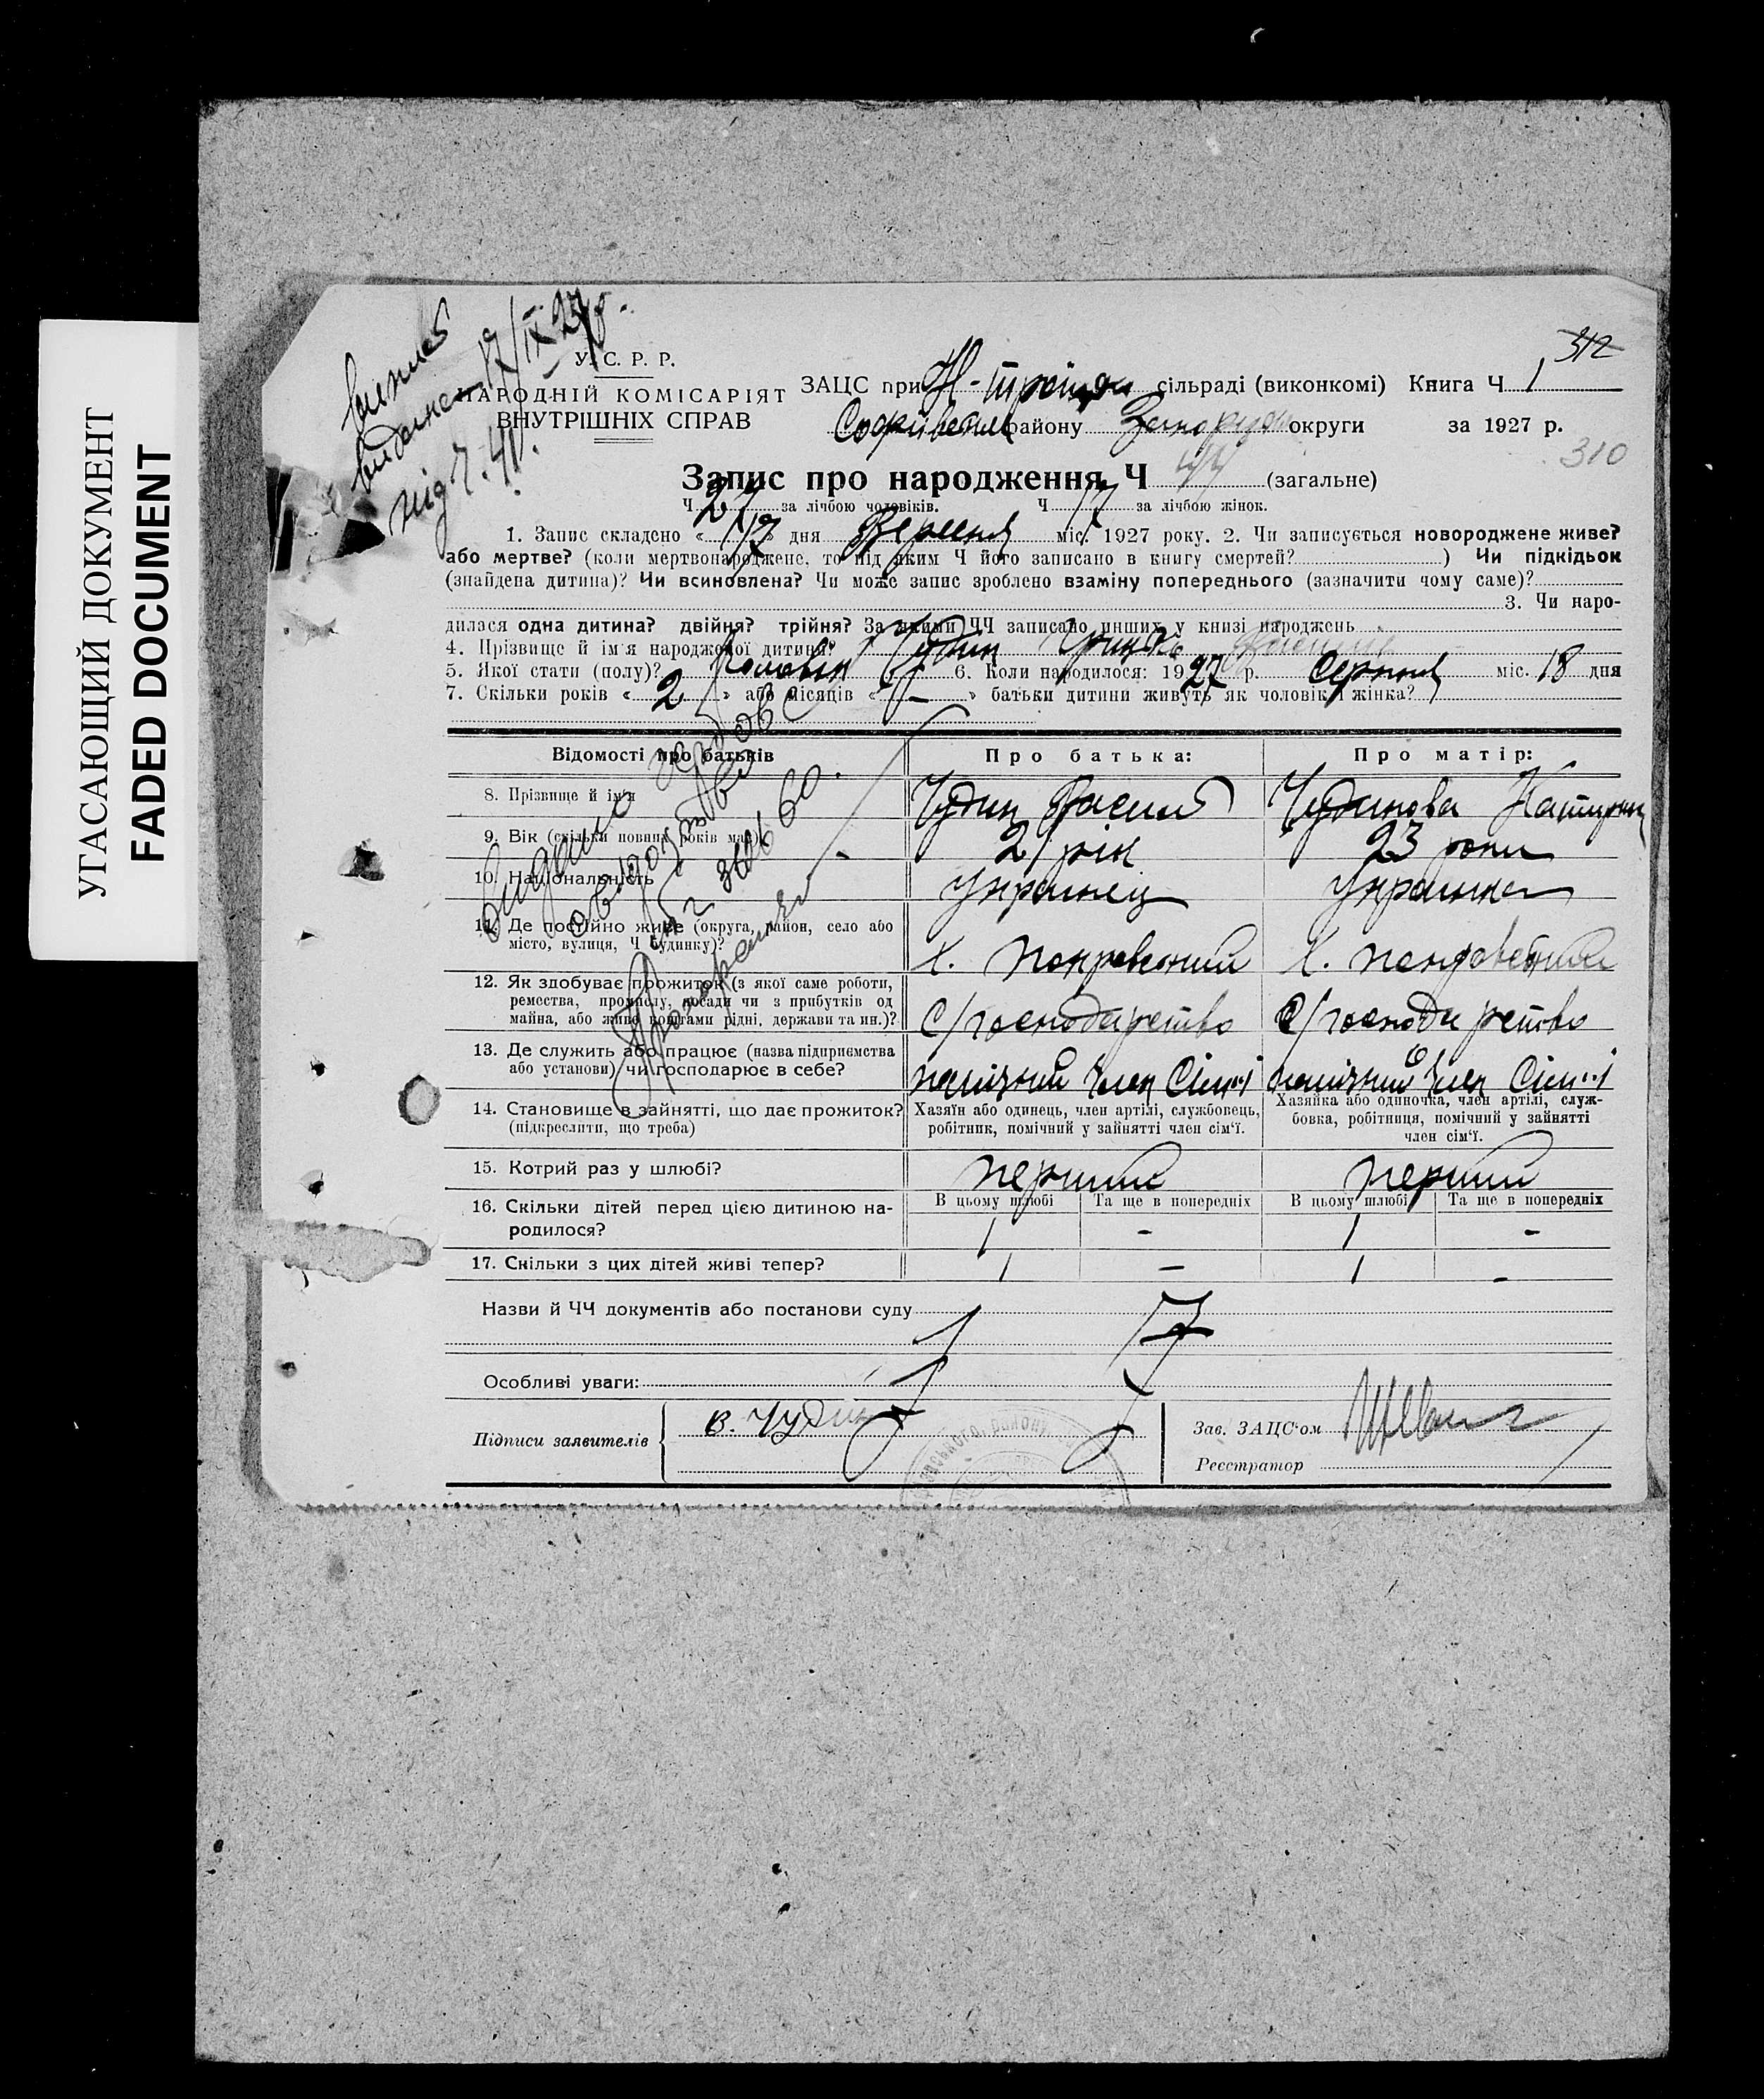 УГАСАЮЩИЙ ДОКУМЕНТ
FADED DOCUMENT
видана 17/IX-27р.
під Ч. 40.
312
У. С. Р. Р.
НАРОДНІЙ КОМІСАРІЯТ
ВНУТРІШНІХ СПРАВ
ЗАЦС при Н-Троїцькій сільраді (виконкомі) Книга Ч 1
району округи за 1927 р.
310
Запис про народження Ч 44 (загальне)
Ч 27 за лічбою чоловіків. Ч 17 за лічбою жінок.
1. Запис складено « 17 » дня Вересня міс. 1927 року. 2. Чи записується новороджене живе?
або мертве? (коли мертвонароджене, то під яким Ч його записано в книгу смертей? ) Чи підкідьок
(знайдена дитина)? Чи всиновлена? Чи може запис зроблено взаміну попереднього (зазначити чому саме)?
3. Чи наро-
дилася одна дитина? двійня? трійня? За якими ЧЧ записано инших у книзі народжень
4. Прізвище й ім'я народженої дитини? Чудин Грицько
5. Якої стати (полу)? Чоловік 6. Коли народилося: 1927 р. Серпня міс. 18 дня
7. Скільки років « 2 » або місяців « — » батьки дитини живуть як чоловік і жінка?
Відомості про батьків Про батька: Про матір:
8. Прізвище й ім'я Чудин Василь Чудинова
9. Вік (скільки повних років має)? 21 рік 23 роки
10. Національність Українець Українка
11. Де постійно живе (округа, район, село або
місто, вулиця, Ч будинку)? Х. Покровський Х. Покровський
12. Як здобуває прожиток (з якої саме роботи,
ремества, промислу, посади чи з прибутків од
майна, або живе коштами рідні, держави та ин.)? С/господарство С/господарство
13. Де служить або працює (назва підприємства
або установи) чи господарює в себе? помічний член сім'ї помічний член сім'ї
14. Становище в зайнятті, що дає прожиток?
(підкреслити, що треба)
Хазяїн або одинець, член артілі, службовець,
робітник, помічний у зайнятті член сім'ї.
Хазяйка або одиночка, член артілі, служ-
бовка, робітниця, помічний у зайнятті
член сім'ї.
15. Котрий раз у шлюбі? перший перший
В цьому шлюбі Та ще в попередніх В цьому шлюбі Та ще в попередніх
16. Скільки дітей перед цією дитиною на-
родилося? 1 - 1 -
17. Скільки з цих дітей живі тепер? 1 - 1 -
Назви й ЧЧ документів або постанови суду
Особливі уваги:
Підписи заявителів В. Чудин
Зав. ЗАЦС'ом
Реєстратор